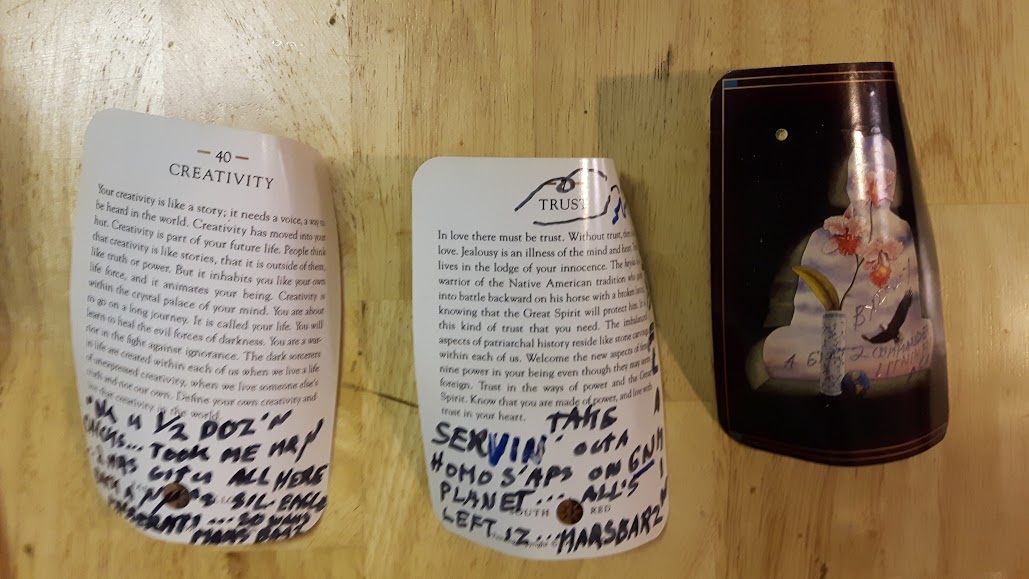 — 40 —
CREATIVITY
Your creativity is like a story; it needs a voice, a way to
be heard in the world. Creativity has moved into your
hut. Creativity is part of your future life. People think
that creativity is like stories, that it is outside of them,
like truth or power. But it inhabits you like your own
life force, and it animates your being. Creativity is
within the crystal palace of your mind. You are about
to go on a long journey. It is called your life. You will
learn to heal the evil forces of darkness. You are a war-
rior in the fight against ignorance. The dark sorcerers
in life are created within each of us when we live a life
of unexpressed creativity, when we live someone else's
truth and not our own. Define your own creativity and
use creativity in the world.
1/2 DOZ'N
TOOK ME
ALL HERE
SIL-EAGLE
MARS BARZ
TRUST
In love there must be trust. Without trust,
love. Jealousy is an illness of the mind and heart.
lives in the lodge of your innocence. The
warrior of the Native American tradition who
into battle backward on his horse with a broken
knowing that the Great Spirit will protect him. It is
this kind of trust that you need. The imbalanced
aspects of patriarchal history reside like stone
within each of us. Welcome the new aspects of
nine power in your being even though they may seem
foreign. Trust in the ways of power and the Great
Spirit. Know that you are made of power, and live with
trust in your heart.
TAKE A
SERVIN' OUTA
HOMO S'APS ON
PLANET... ALL'S
SOUTH RED
LEFT IZ... MARSBARZ"